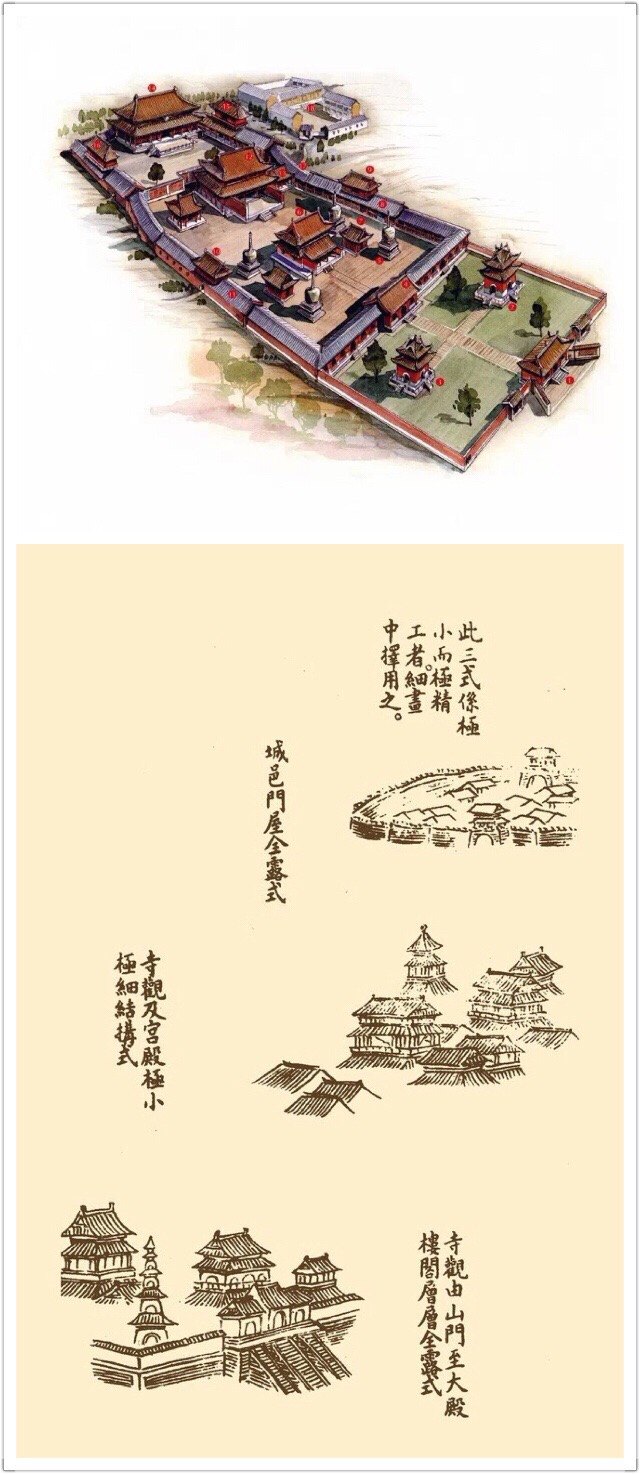 14
15
18
16
12
9
8
6
10
2
1
此三式係極
小而極精
工者。細畫
中擇用之。
城邑門屋全露式
寺觀及宮殿極小
極細結搆式
寺觀由山門至大殿
樓閣層層全露式